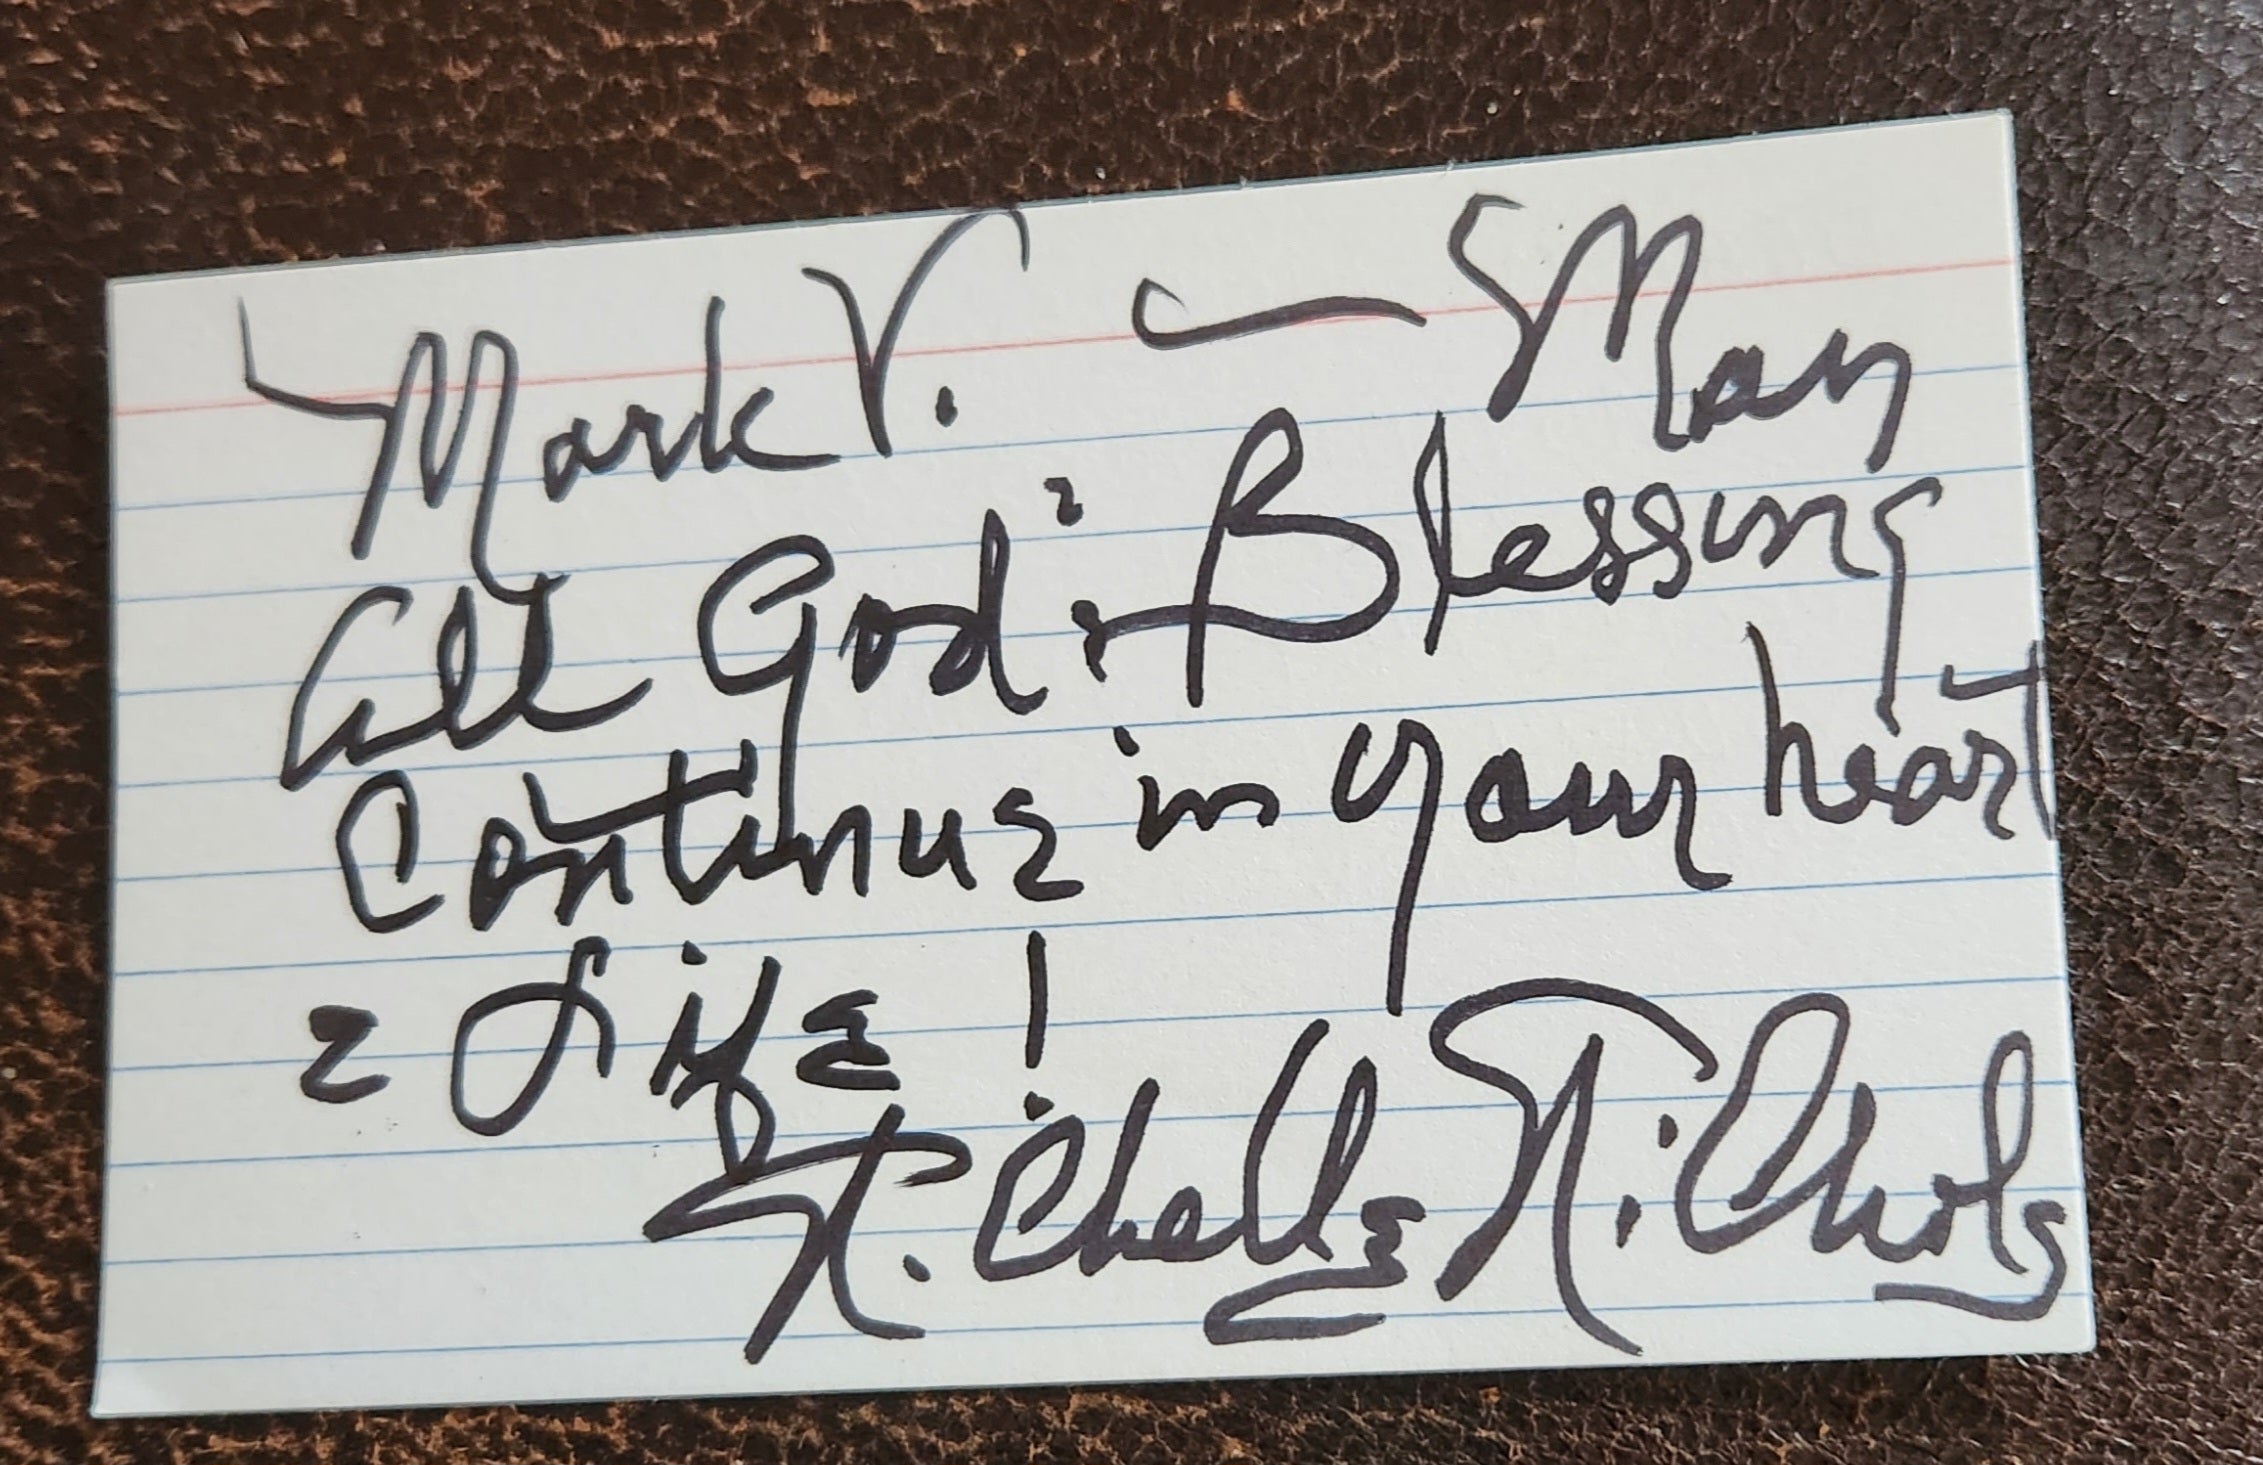 Mark V. — May
all God's Blessing
Continue in your heart
& Life!
Nichelle Nichols